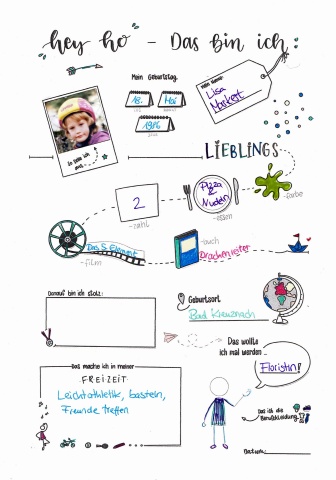 hey ho - Das bin ich
Mein Geburtstag
18. Mai
1986
Mein Name:
Lisa
Markert
So seh ich
aus
LIEBLINGS
2
-zahl
Pizza
&
Nudeln
-essen
-farbe
Das 5. Element
-film
-buch
Drachenreiter
Darauf bin ich stolz:
Geburtsort
Bad Kreuznach
Das wollte
ich mal werden ..
Floristin!
Das mache ich in meiner
FREIZEIT
Leichtathletik, basteln,
Freunde treffen
Das ist die
Berufskleidung
Datum: